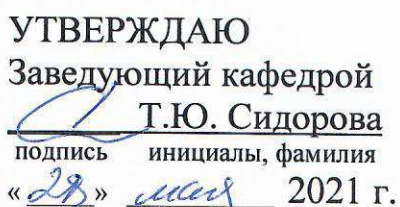 УТВЕРЖДАЮ
Заведующий кафедрой
Т.Ю. Сидорова
подпись инициалы, фамилия
« » мая 2021 г.